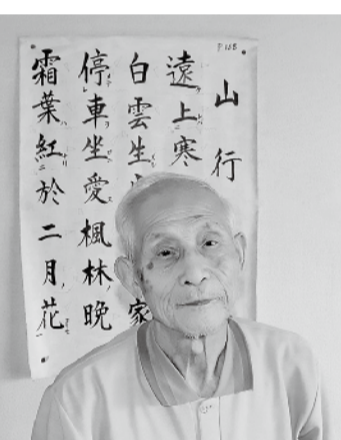 山行
遠上寒
白雲生家
停車坐愛楓林晚
霜葉紅於二月花